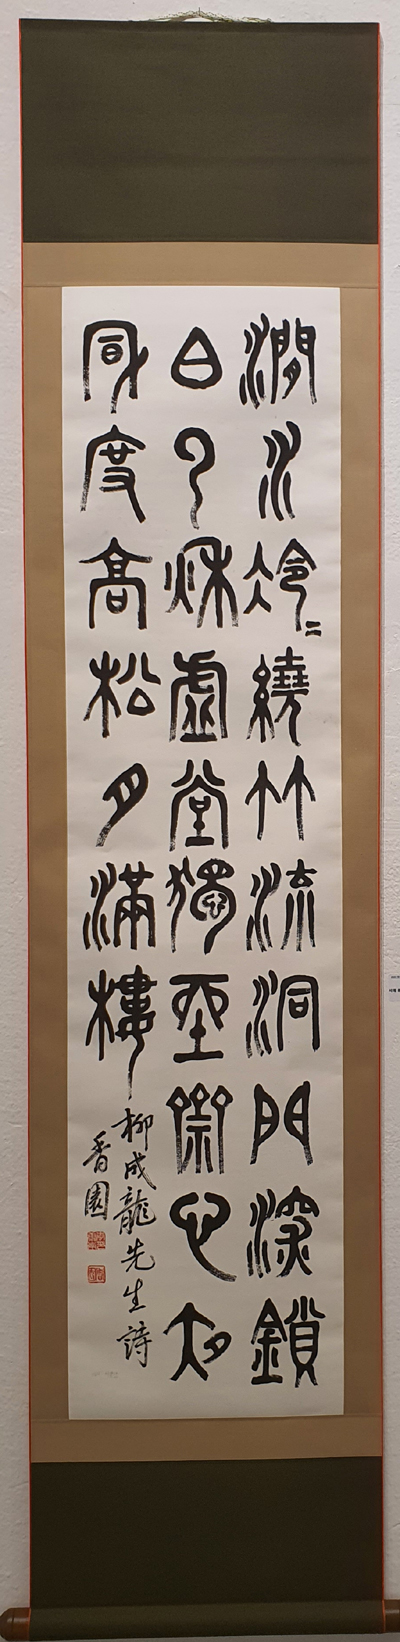 澗水冷〻繞竹流洞門深鎖
白云秋虛堂獨坐心夜
風度高松月滿樓
柳成龍先生詩
香園